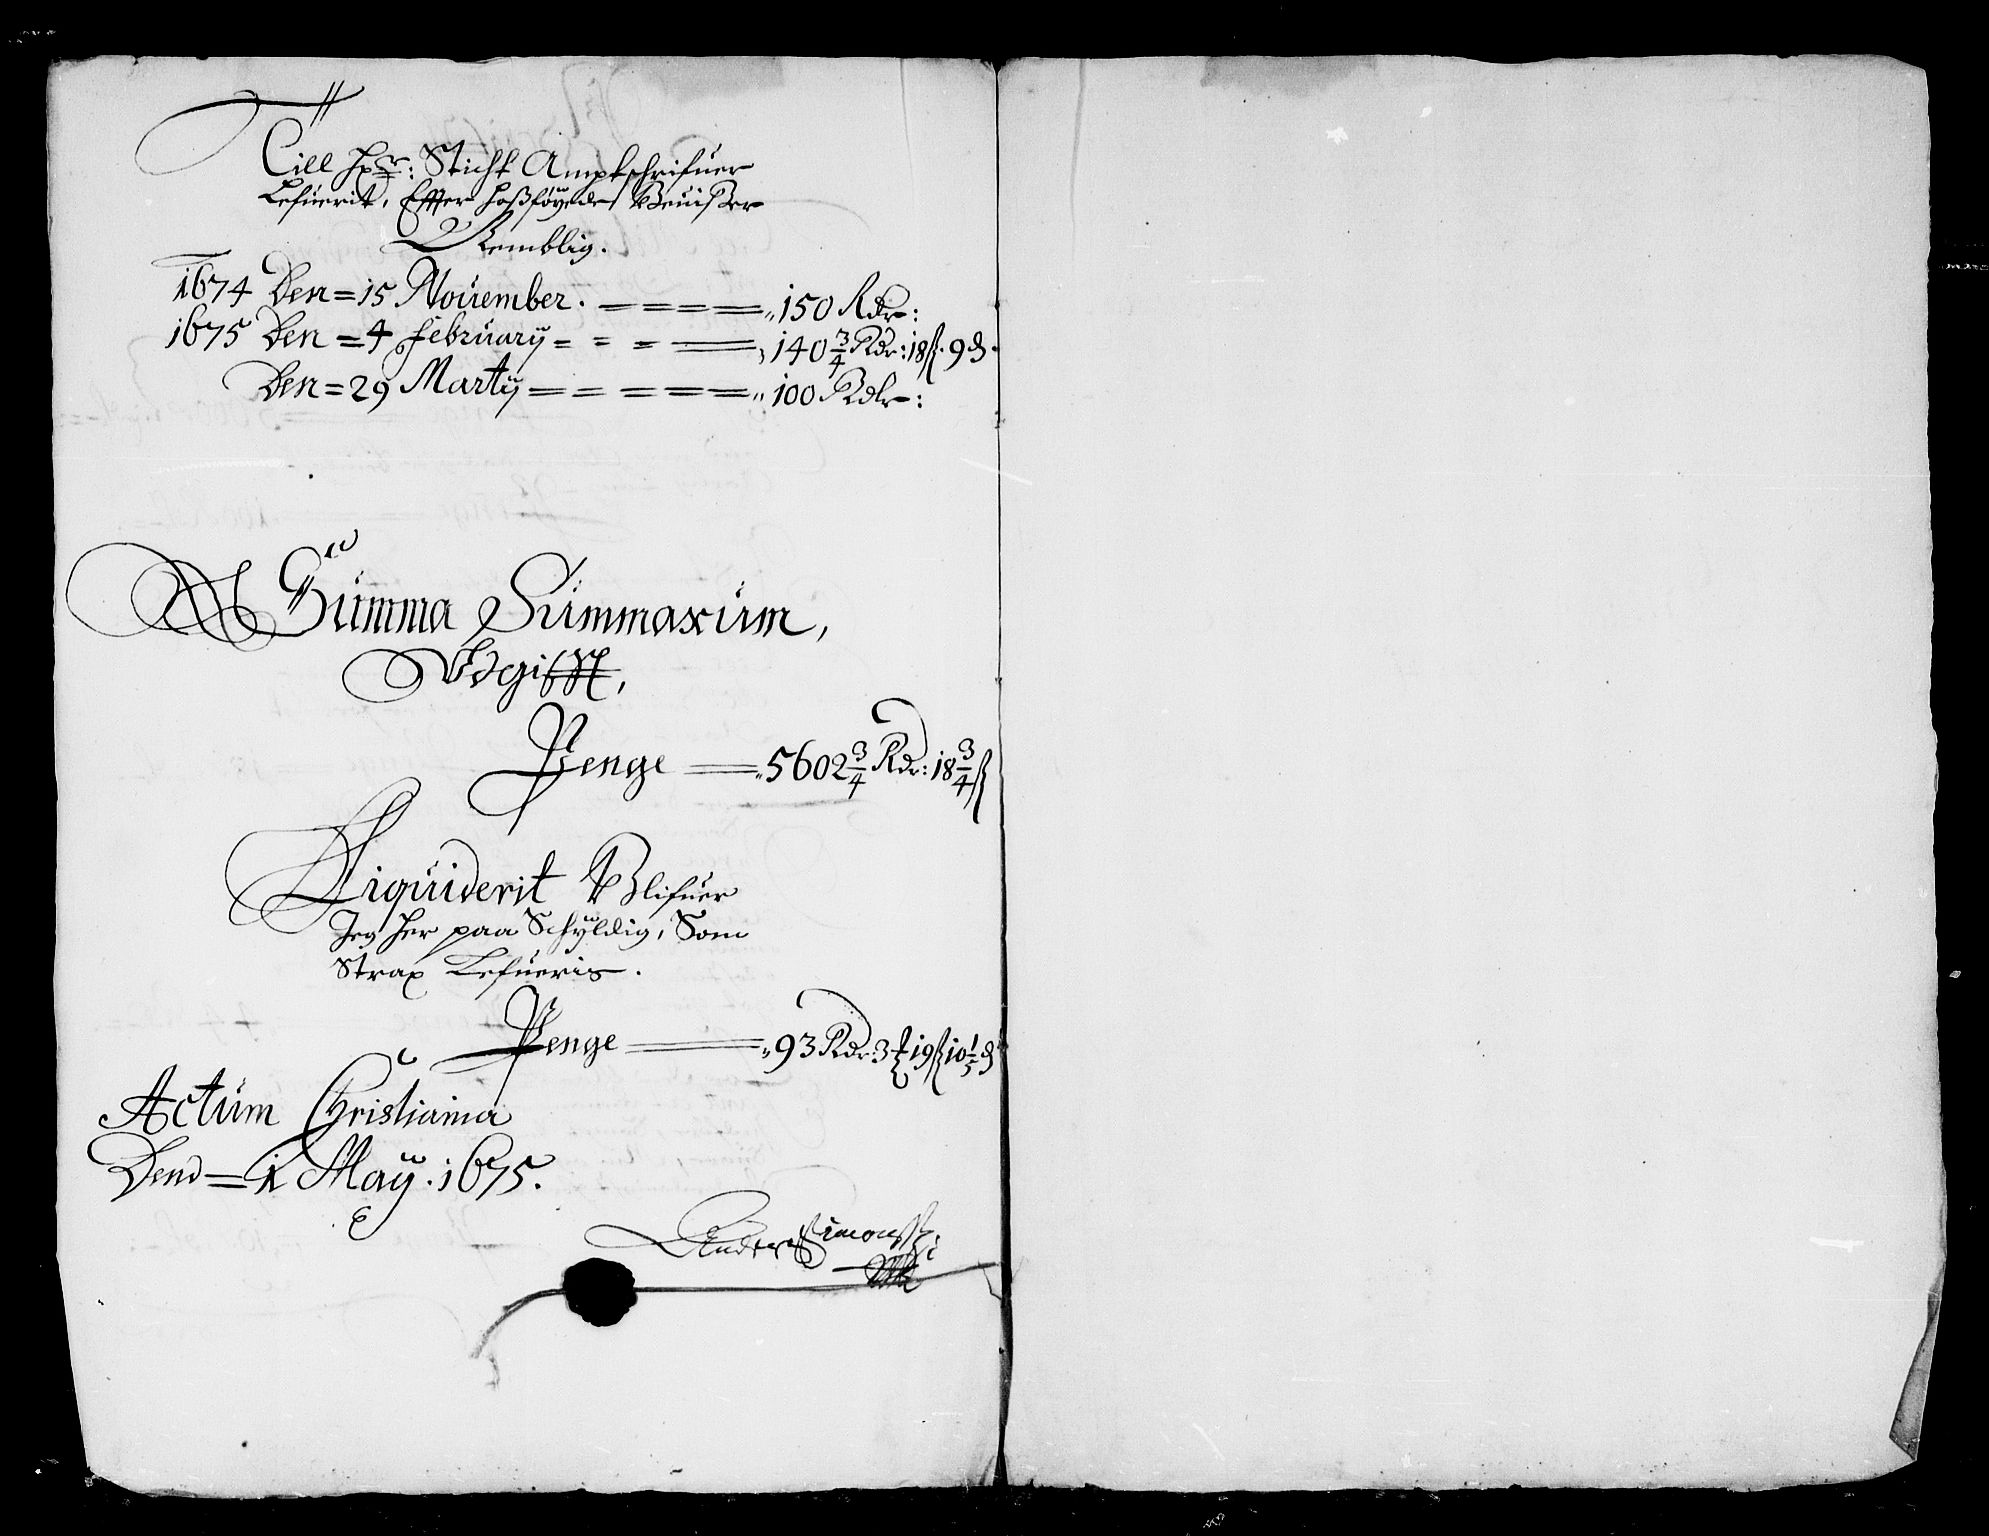 Till Hr: Sticht Amptschrifuer
Lefuerit, Effter hoßföyede Beuißer
Nemblig.
1674 Den = 15 Nouember. = = = = „150 Rdr:
1675 Den = 4 february = = = = „140 3/4 Rdr: 18 ß. 9 d.
Den = 29 Marty = = = = = „100 Rdlr:
Summa Summarum,
Vdgifft,
Penge = „5602 3/4 Rdr: 18 3/4 ß
Liquiderit Blifuer
Jeg her paa Schyldig, Som
Strax Lefueris.
Penge = „93 Rdr: 3 19 ß 10 1/5 d
Actum Christiania
Dend = 1 May. 1675.
Anders Simonss: